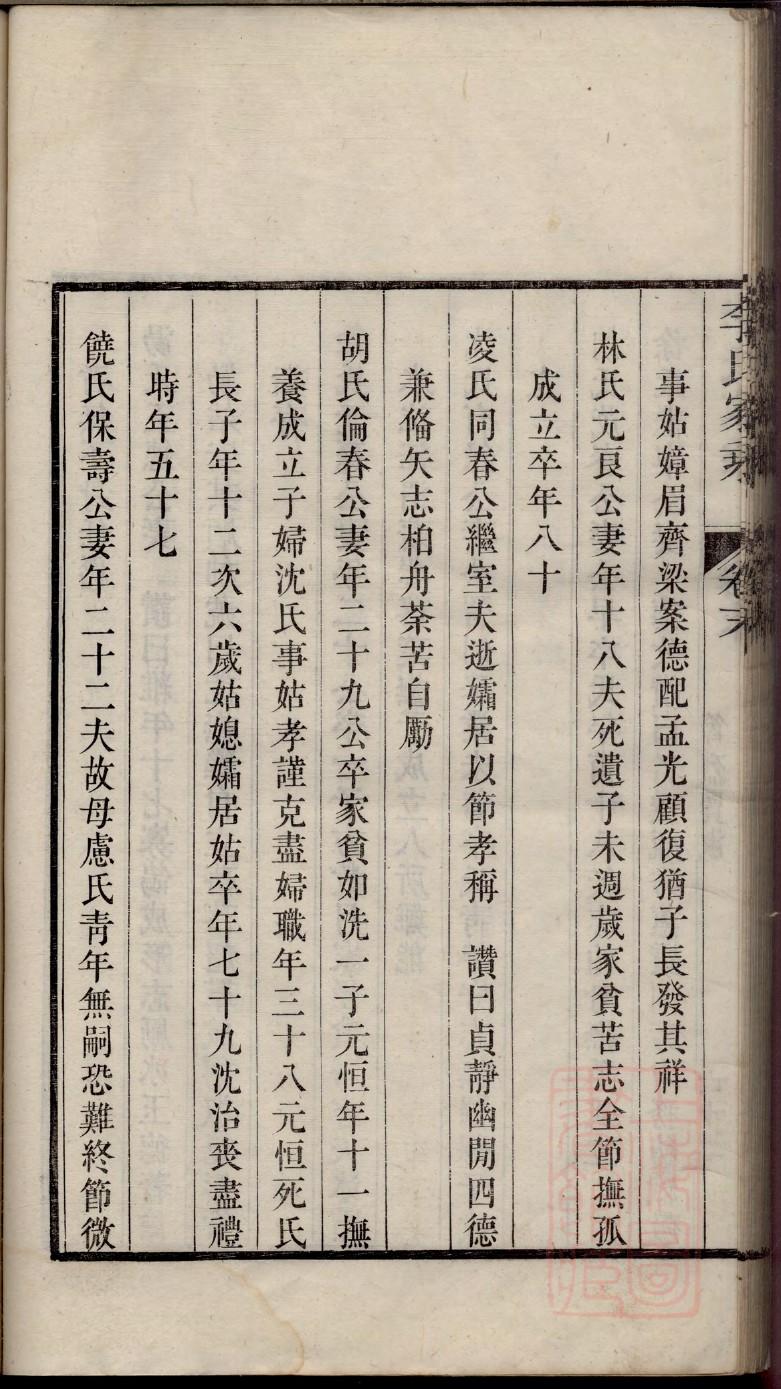 李氏家乘　卷末
事姑嫜眉齊梁案德配孟光顧復猶子長發其祥
林氏元良公妻年十八夫死遺子未週歲家貧苦志全節撫孤
成立卒年八十
凌氏同春公繼室夫逝孀居以節孝稱　讚曰貞靜幽閒四德
兼偹矢志柏舟荼苦自勵
胡氏倫春公妻年二十九公卒家貧如洗一子元恒年十一撫
養成立子婦沈氏事姑孝謹克盡婦職年三十八元恒死氏
長子年十二次六歲姑媳孀居姑卒年七十九沈治喪盡禮
時年五十七
饒氏保壽公妻年二十二夫故母慮氏靑年無嗣恐難終節微